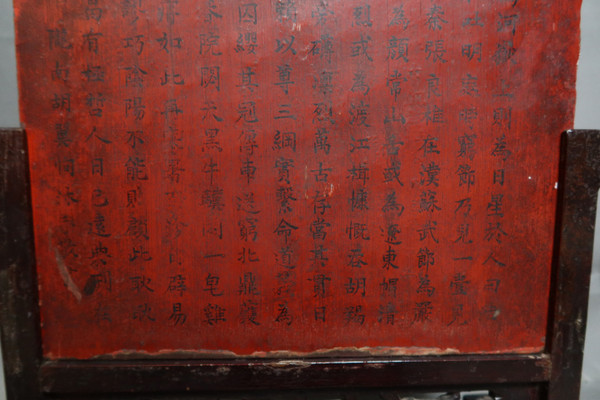 河嶽上則為日星於人曰
明時窮節乃見一
秦張良椎在漢蘇武節為嚴
為顏常山舌或為遼東帽清
烈或為渡江楫慷慨吞胡羯
磚凜烈萬古存當其貫日
賴以尊三綱實繫命道義為
囚纓其冠傳車送窮北鼎鑊
院閟天黑牛驥同一皂雞
如此再寒暑自辟易
巧陰陽不能賊顧此耿耿
曷有極哲人日已遠典刑在
南胡